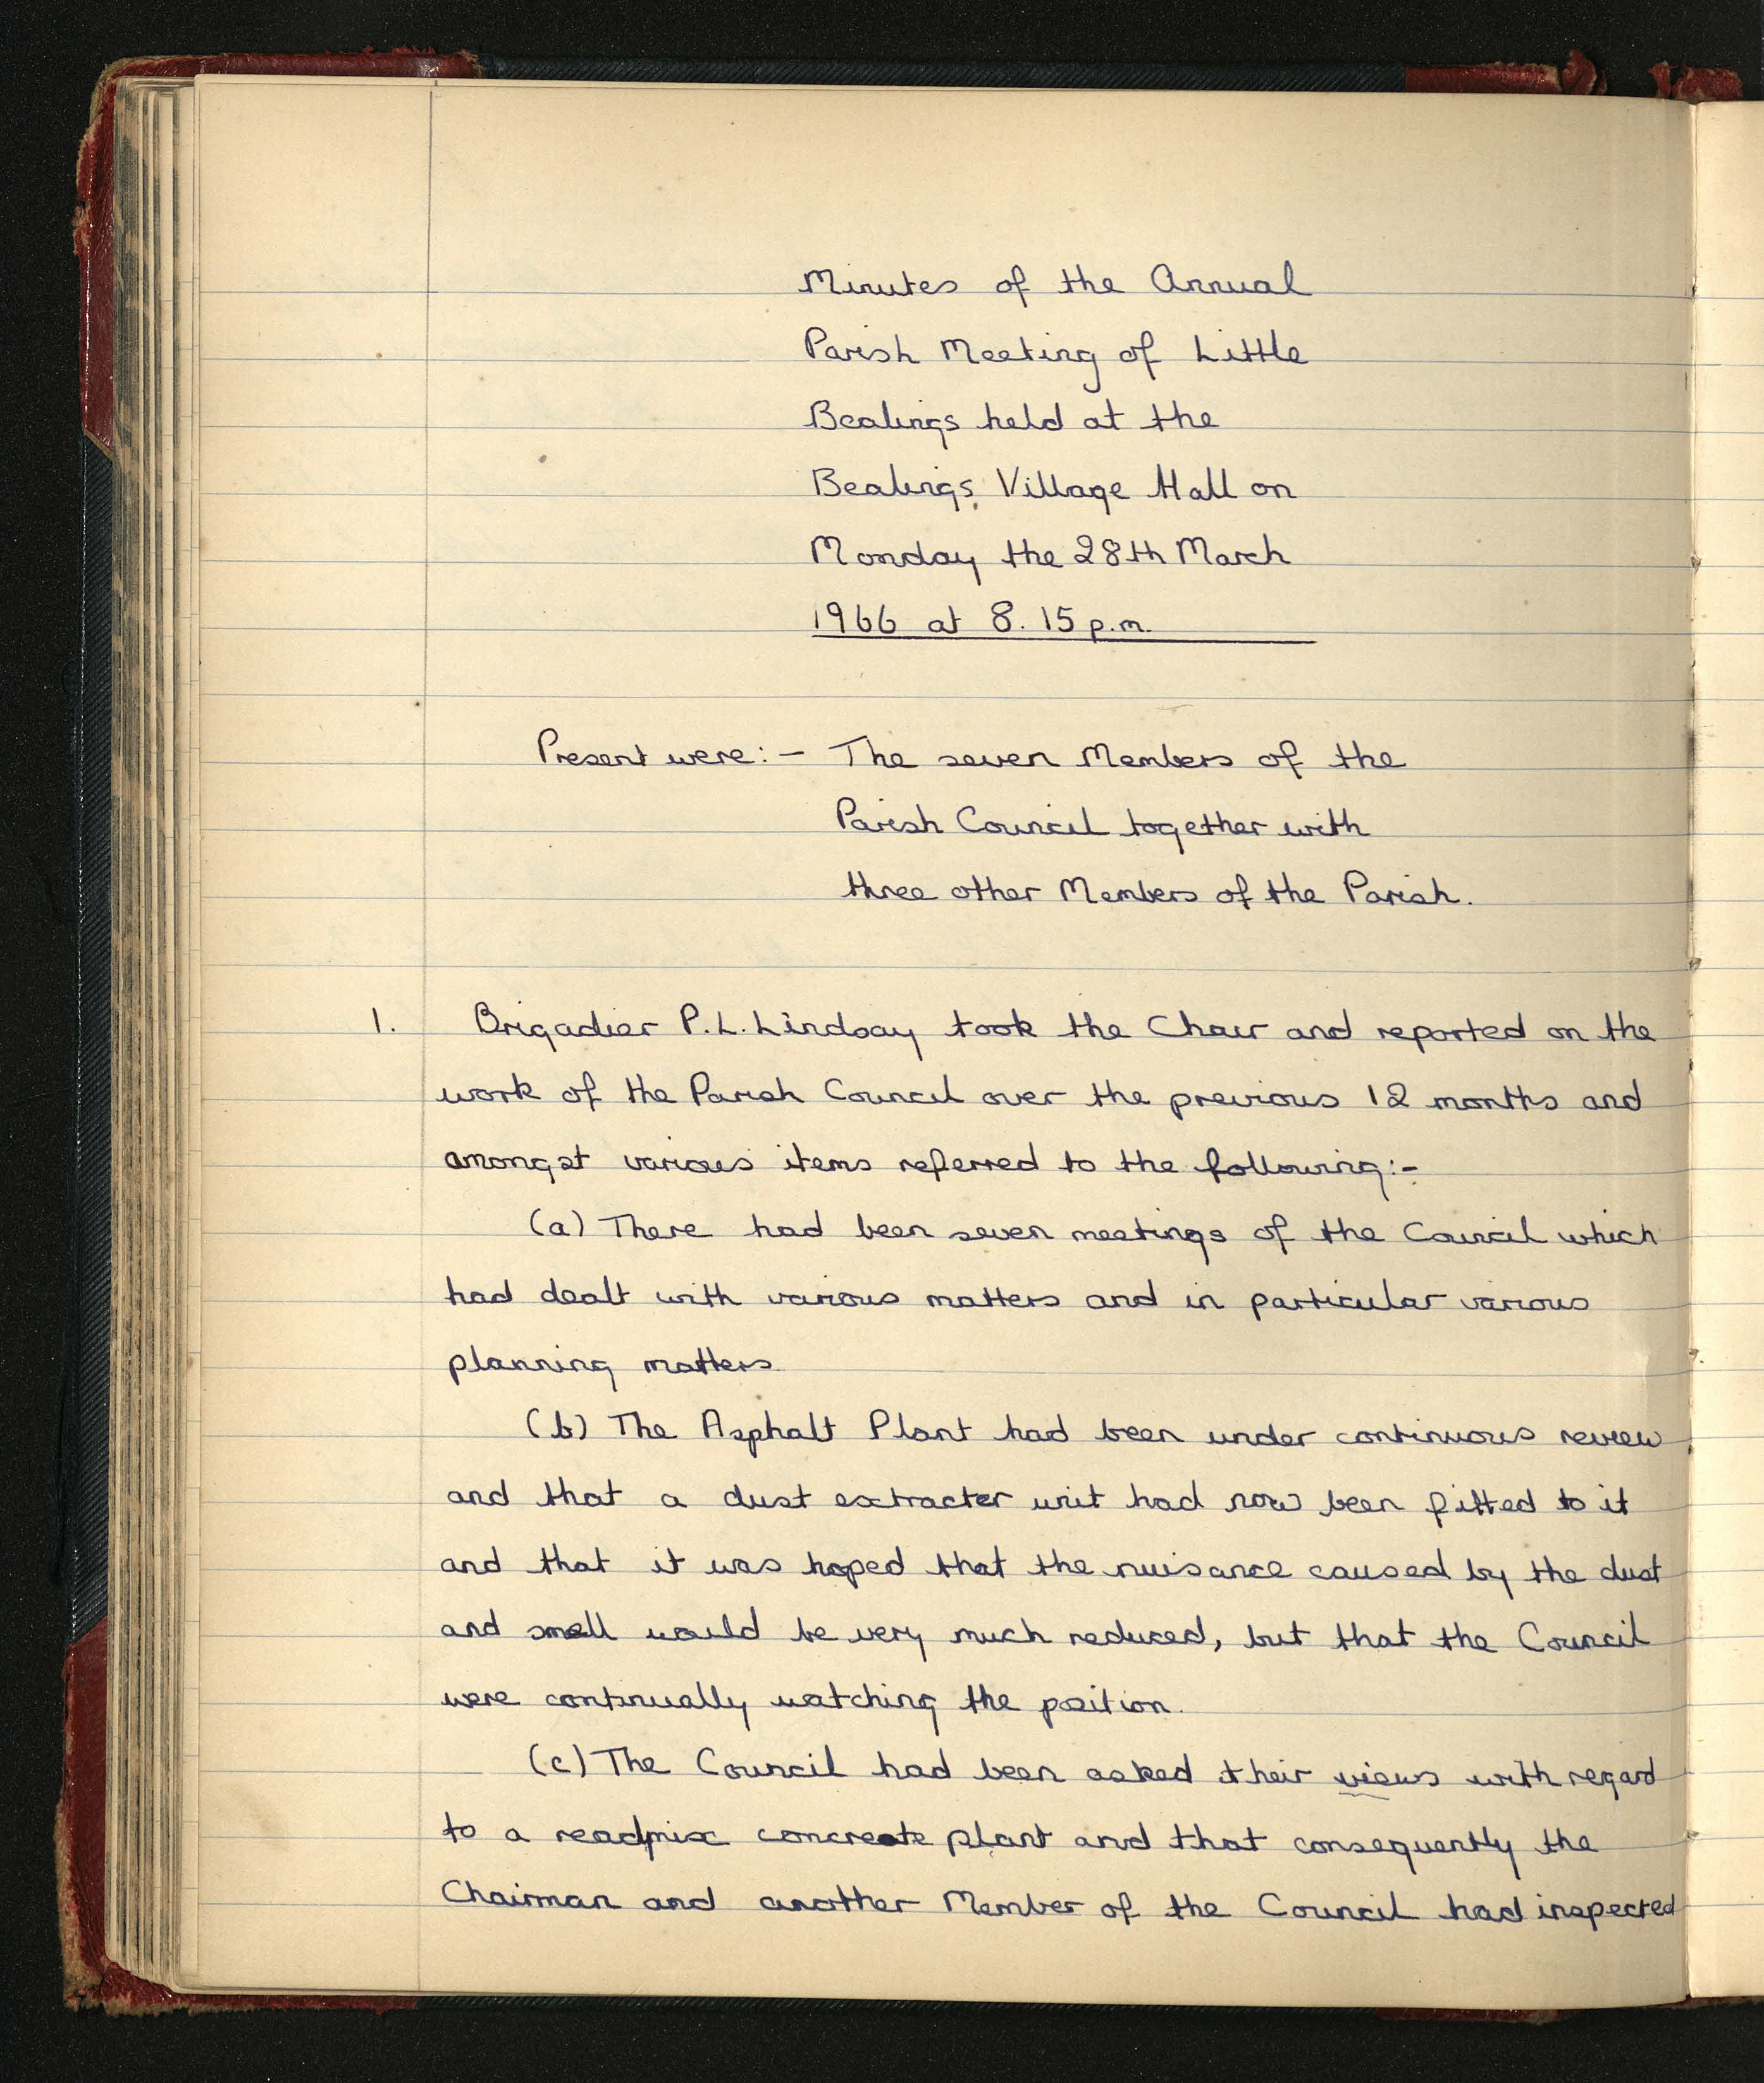 Minutes of the Annual
Parish Meeting of Little
Bealings held at the
Bealings Village Hall on
Monday the 28th March
1966 at 8.15 p.m.
Present were:- The seven Members of the
Parish Council together with
three other Members of the Parish.
1. Brigadier P.L. Lindsay took the Chair and reported on the
work of the Parish Council over the previous 12 months and
amongst various items referred to the following:-
(a) There had been seven meetings of the Council which
had dealt with various matters and in particular various
planning matters.
(b) The Asphalt Plant had been under continuous review
and that a dust extracter unit had now been fitted to it
and that it was hoped that the nuisance caused by the dust
and smell would be very much reduced, but that the Council
were continually watching the position.
(c) The Council had been asked their views with regard
to a readmix concreate plant and that consequently the
Chairman and another Member of the Council had inspected